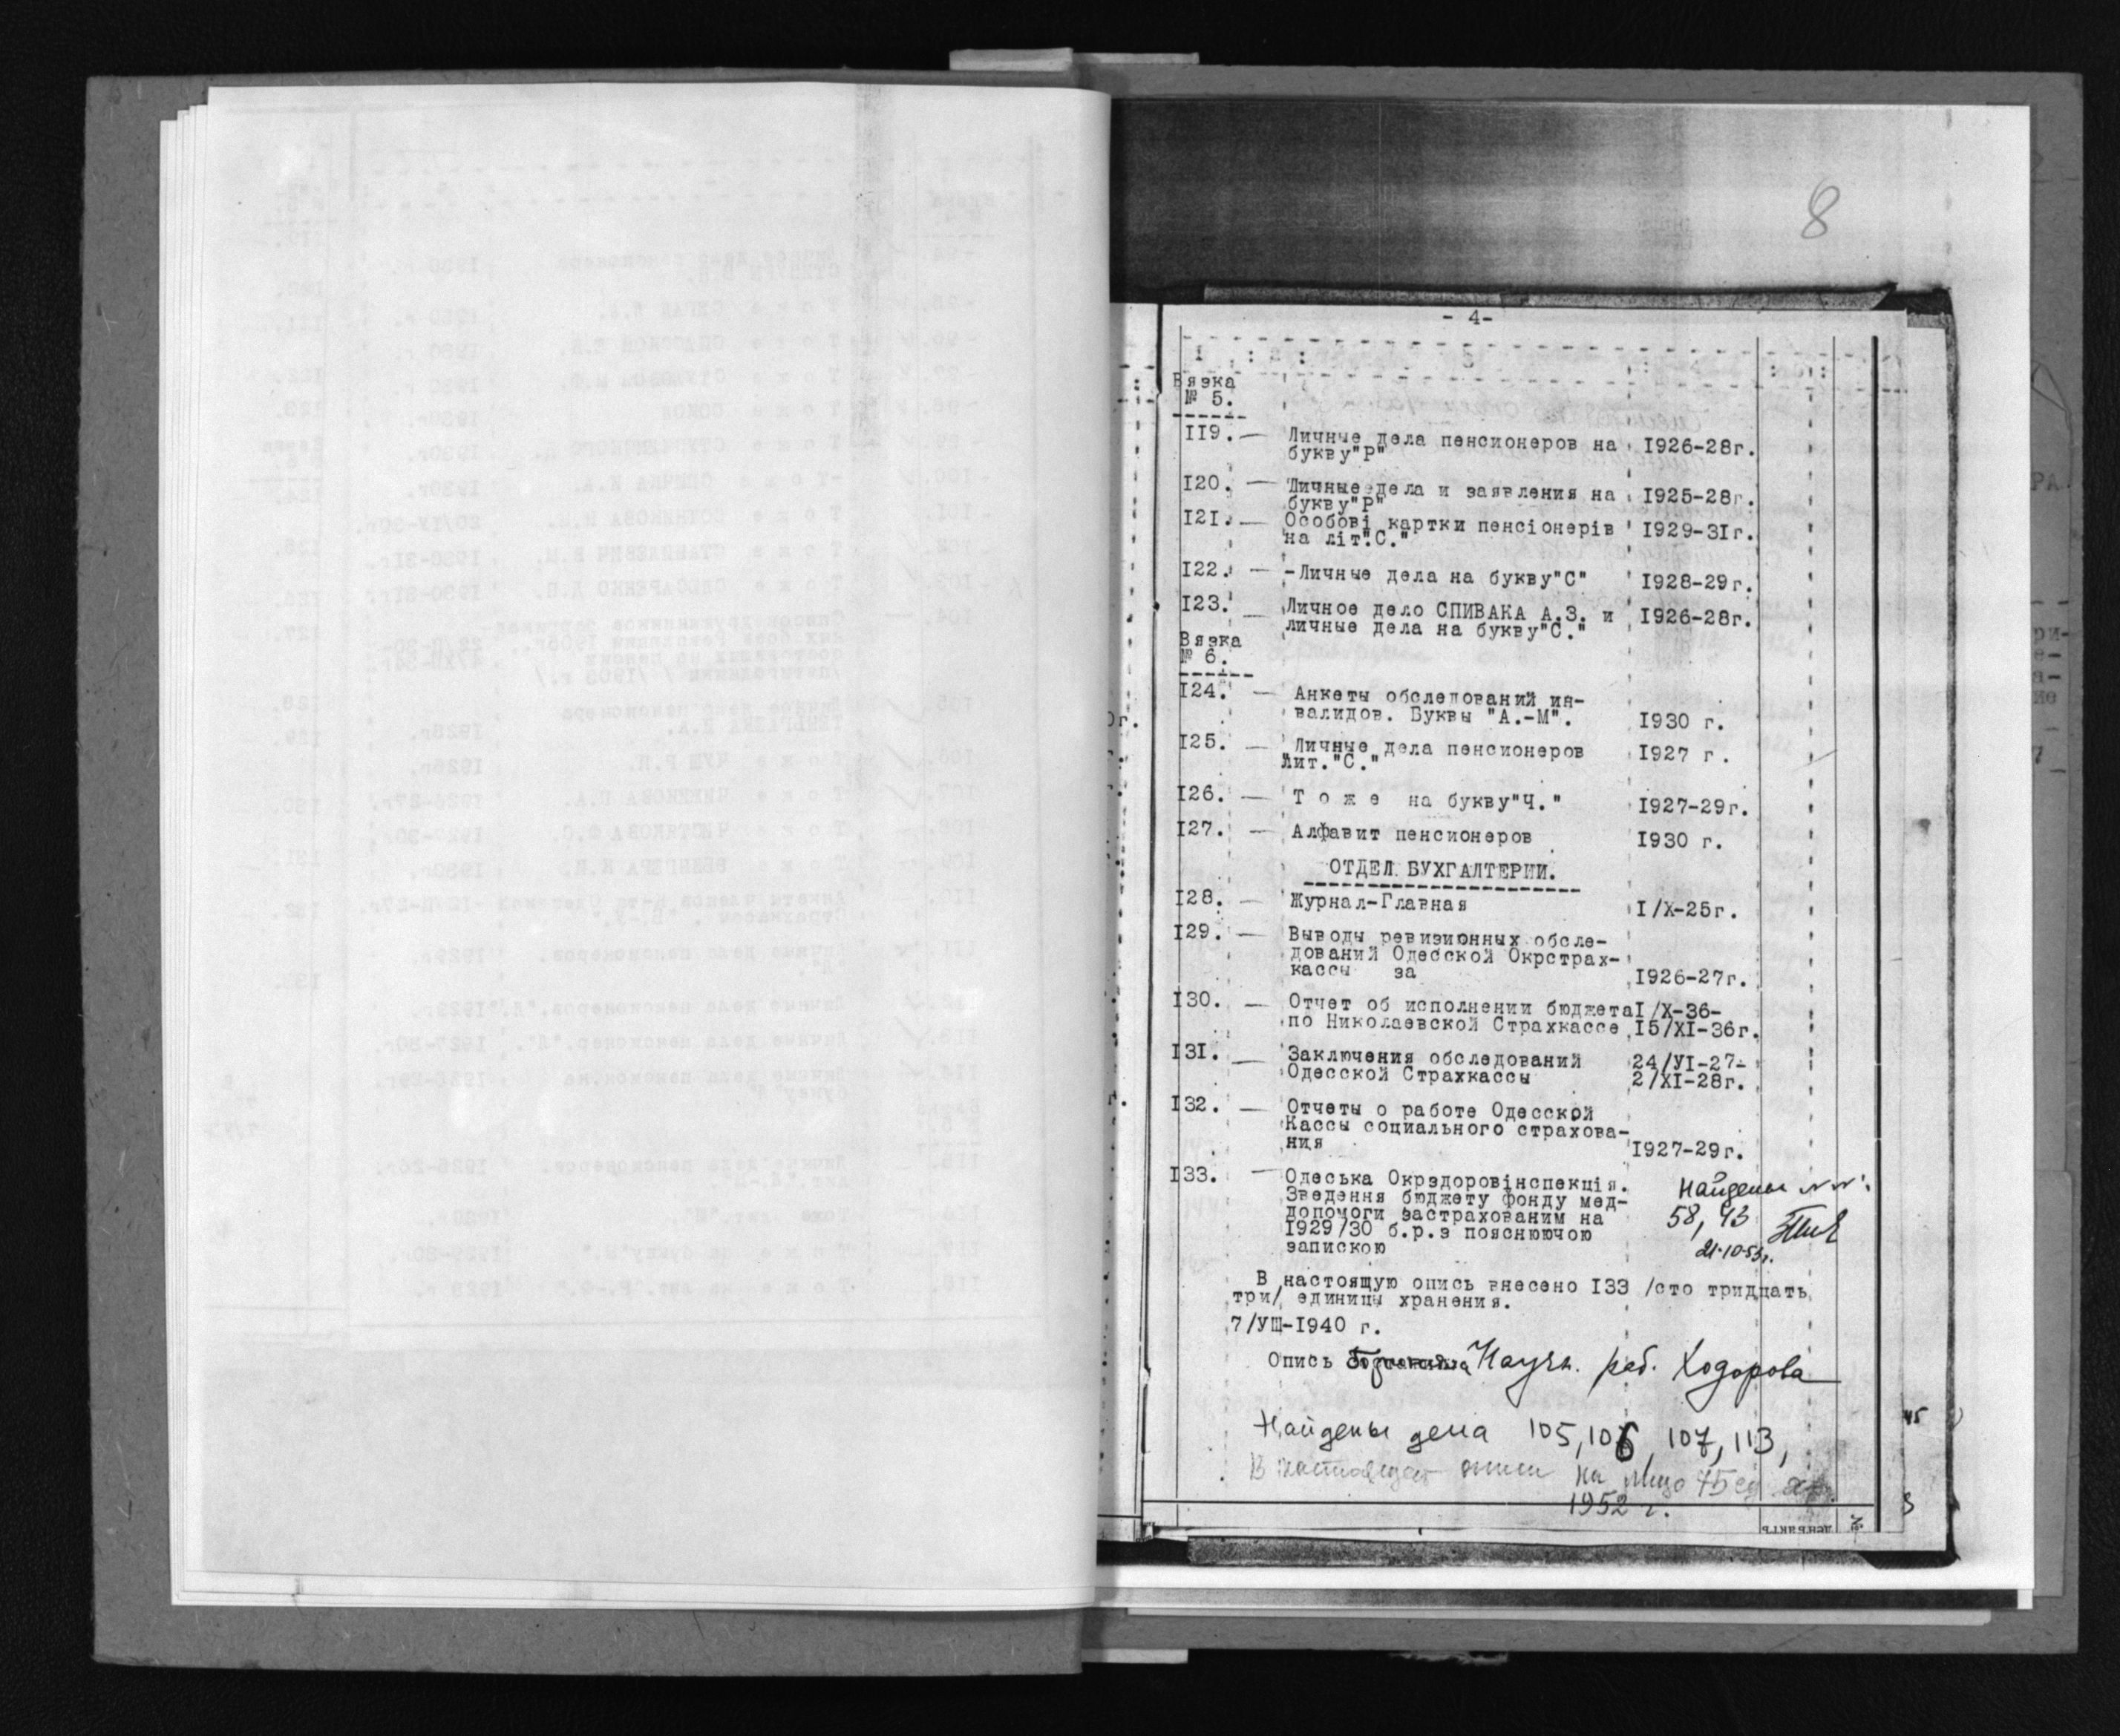 8
- 4-
1 : 2 : 3 : : :
Вязка
№ 5.
II9. — Личные дела пенсионеров на I926-28г.
букву"Р"
I20. — Личные дела и заявления на I925-28г.
букву"Р"
I2I. — Особові картки пенсіонерів I929-3Iг.
на літ."С."
I22. — -Личные дела на букву"С" I928-29г.
I23. — Личное дело СПИВАКА А.З. и I926-28г.
личные дела на букву"С."
Вязка
№ 6.
I24. — Анкеты обследований ин-
валидов. Буквы "А.-М". I930 г.
I25. — Личные дела пенсионеров I927 г.
Лит."С."
I26. — Т о ж е на букву"Ч." I927-29г.
I27. — Алфавит пенсионеров I930 г.
ОТДЕЛ БУХГАЛТЕРИИ.
I28. — Журнал-Главная I/X-25г.
I29. — Выводы ревизионных обсле-
дований Одесской Окрстрах-
кассы за I926-27г.
I30. — Отчет об исполнении бюджета I/X-36-
по Николаевской Страхкассе I5/XI-36г.
I3I. — Заключения обследований 24/УI-27-
Одесской Страхкассы 2/XI-28г.
I32. — Отчеты о работе Одесской
Кассы социального страхова-
ния I927-29г.
I33. — Одеська Окрздоровінспекція.
Зведення бюджету фонду мед-
допомоги застрахованим на
I929/30 б.р.з пояснюючою
запискою
Найдены №№:
58, 93
21·10·53г.
В настоящую опись внесено I33 /сто тридцать
три/ единицы хранения.
7/УШ-I940 г.
Опись Научн. раб. Ходорова
Найдены дела 105, 106, 107, 113,
В настоящей описи на лицо 75 ед. хр.
1952 г.